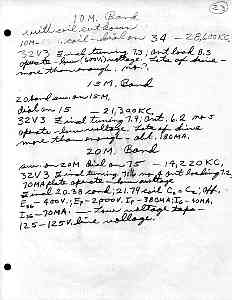 23
10 M. Band
with coil cut down
10M. coil - dial on 34 - 28,600 KC,
32V3 Final tuning 7.3; ant. load 8.3
operate - low (600V) voltage. Lots of drive -
more than enough.
15 M. Band
20 band sw. on 15M.
dial on 15 - 21,300 KC,
32V3 Final tuning 7.7; ant. 6.2 no 5
operate - low voltage. Lots of drive
more than enough - abt. 180MA.
20 M. Band
sw. on 20M Dial on 75 - 14,220 KC,
32V3 Final tuning ant. loading 7.2
70MA plate operate - low voltage
Final 20.38 cond; 21.79 coil
400V.; EP-2000V, IP-380MA; IG-40MA,
70MA. - Low voltage taps -
125-125V. line voltage.